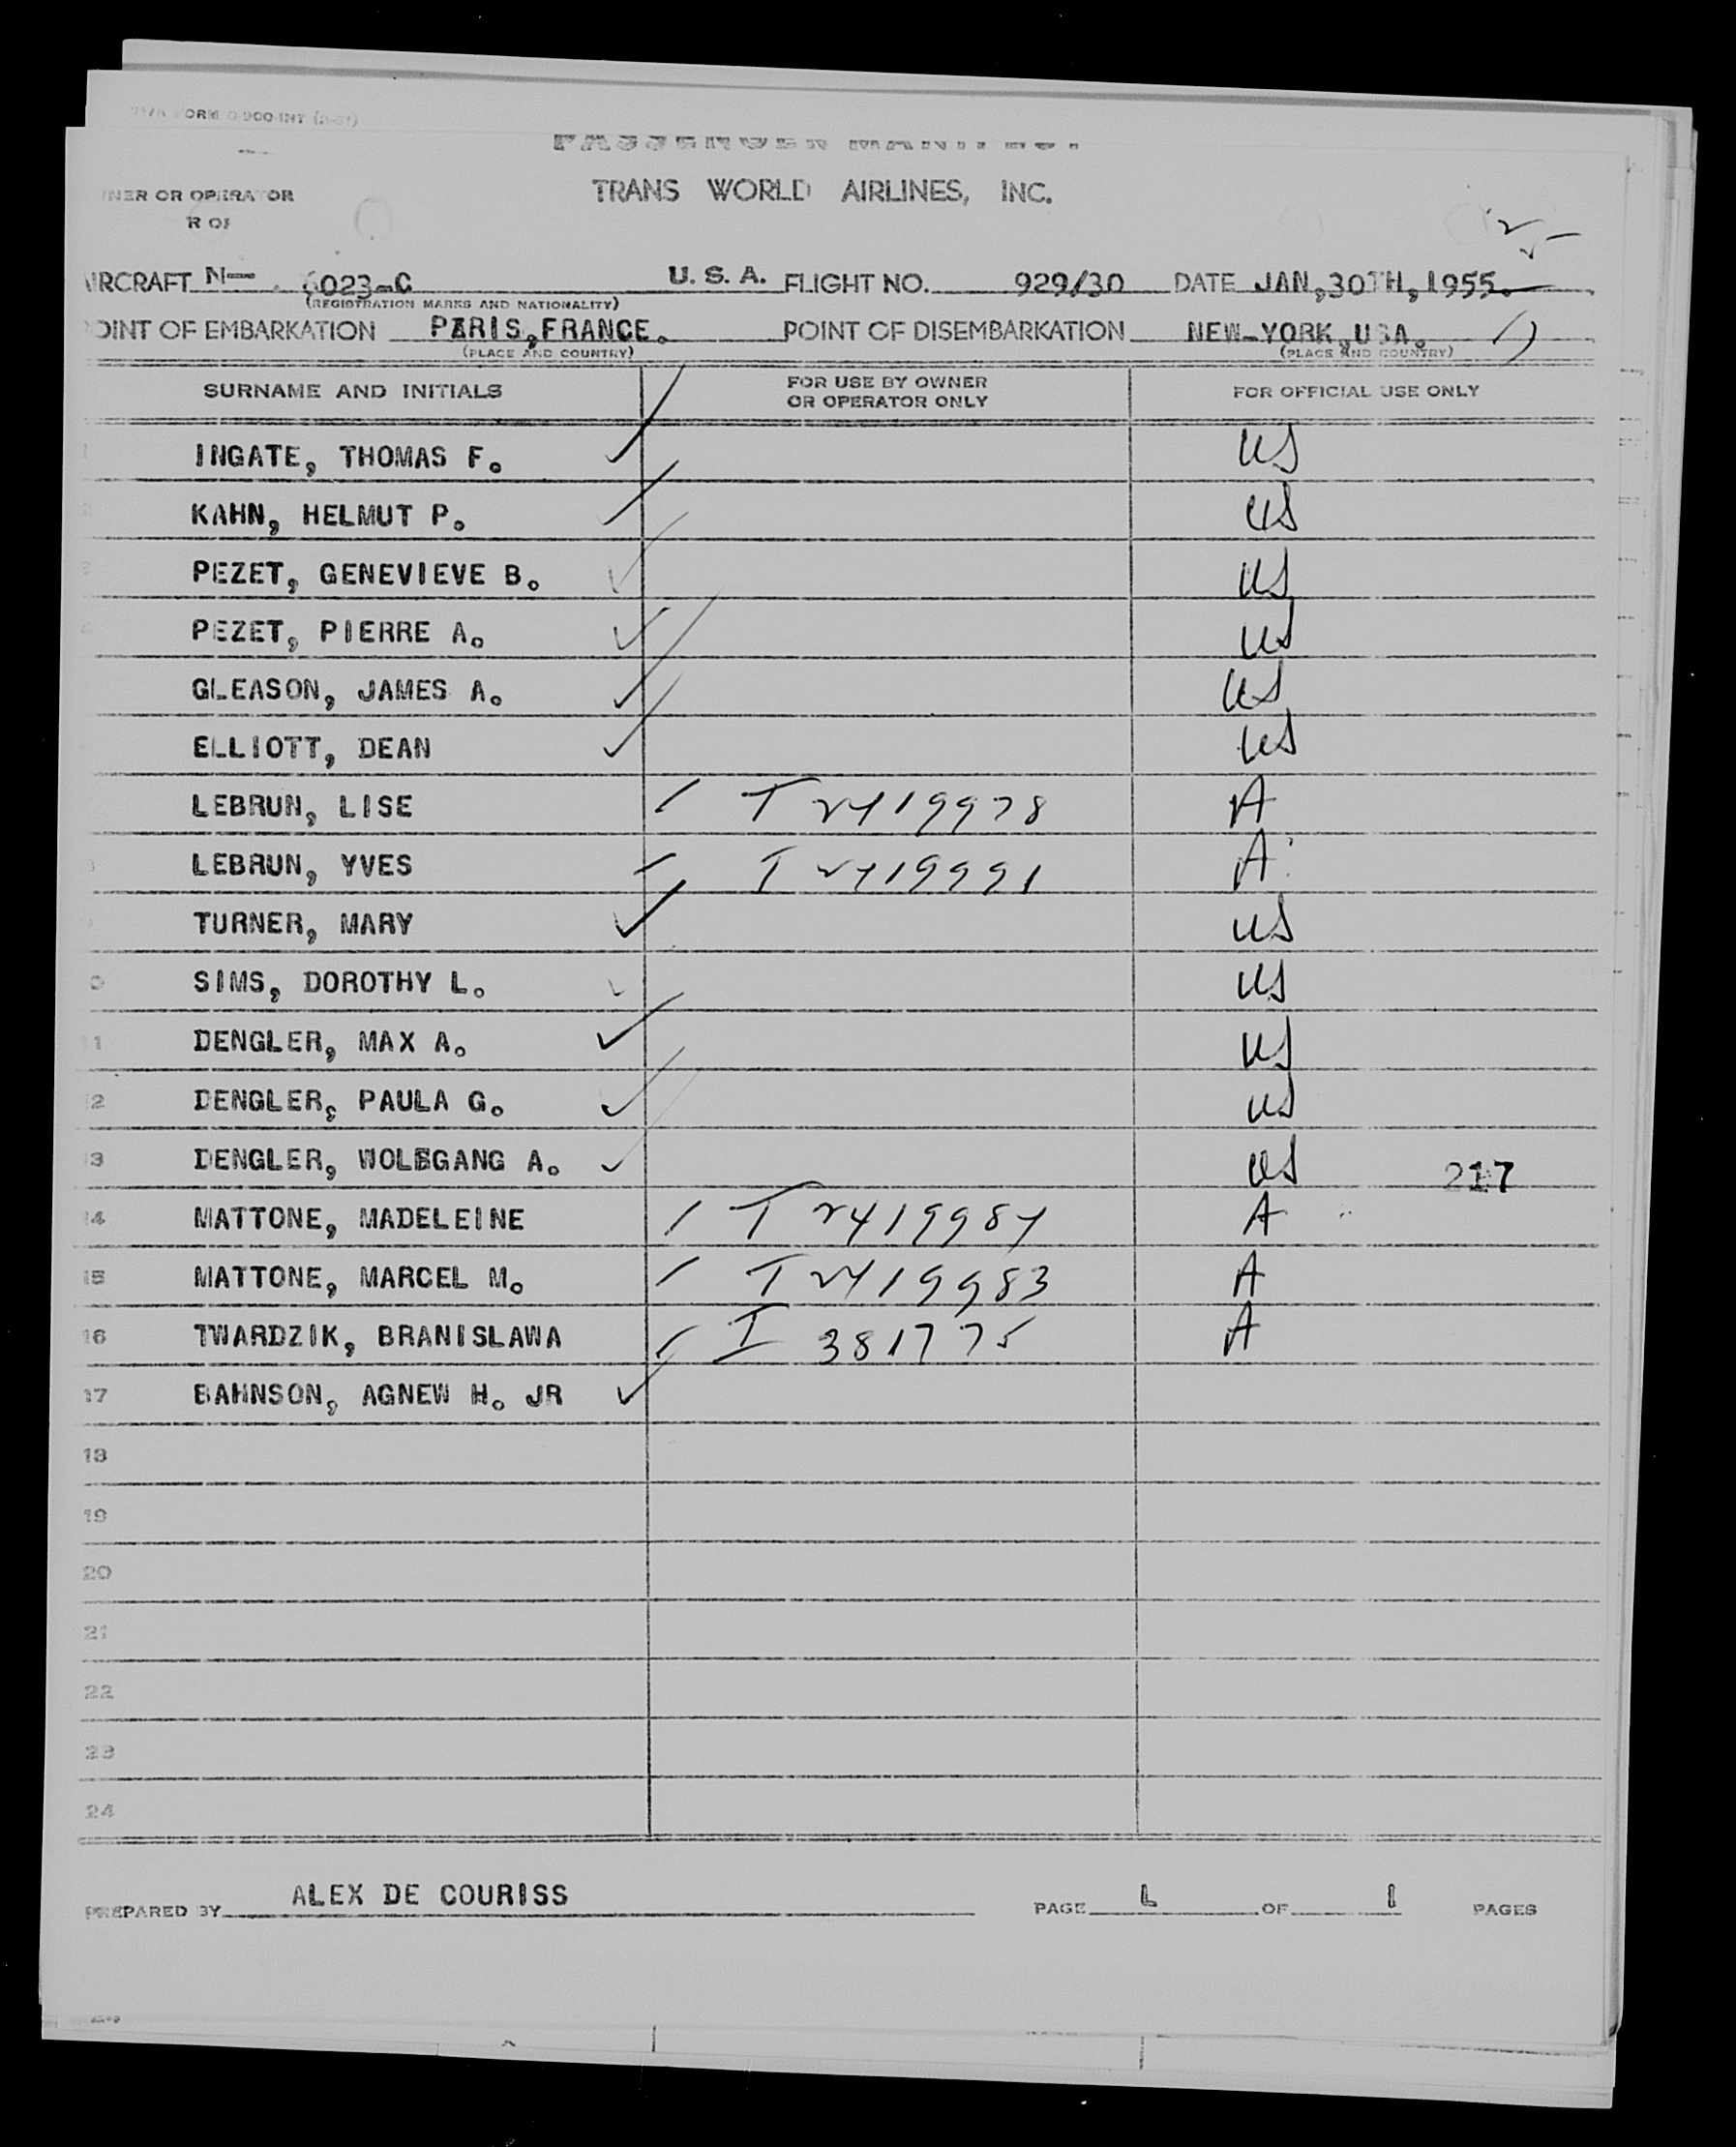 TWA FORM O 900-INT
PASSENGER MANIFEST
NER OR OPERATOR
TRANS WORLD AIRLINES, INC.
R OF
IRCRAFT N— 6023-C U. S. A. FLIGHT NO. 929/30 DATE JAN,30TH,1955.
(REGISTRATION MARKS AND NATIONALITY)
OINT OF EMBARKATION PARIS,FRANCE. POINT OF DISEMBARKATION NEW-YORK,USA.
(PLACE AND COUNTRY) (PLACE AND COUNTRY)
SURNAME AND INITIALS FOR USE BY OWNER OR OPERATOR ONLY FOR OFFICIAL USE ONLY
INGATE, THOMAS F. US
KAHN, HELMUT P. US
PEZET, GENEVIEVE B. US
PEZET, PIERRE A. US
GLEASON, JAMES A. US
ELLIOTT, DEAN US
LEBRUN, LISE T 2419978 A
LEBRUN, YVES T 2419991 A
TURNER, MARY US
SIMS, DOROTHY L. US
11 DENGLER, MAX A. US
12 DENGLER, PAULA G. US
13 DENGLER, WOLFGANG A. US 217
14 MATTONE, MADELEINE T 2419984 A
15 MATTONE, MARCEL M. T 2419983 A
16 TWARDZIK, BRANISLAWA I 381775 A
17 BAHNSON, AGNEW H. JR
18
19
20
21
22
23
24
PREPARED BY ALEX DE COURISS PAGE 1 OF 1 PAGES